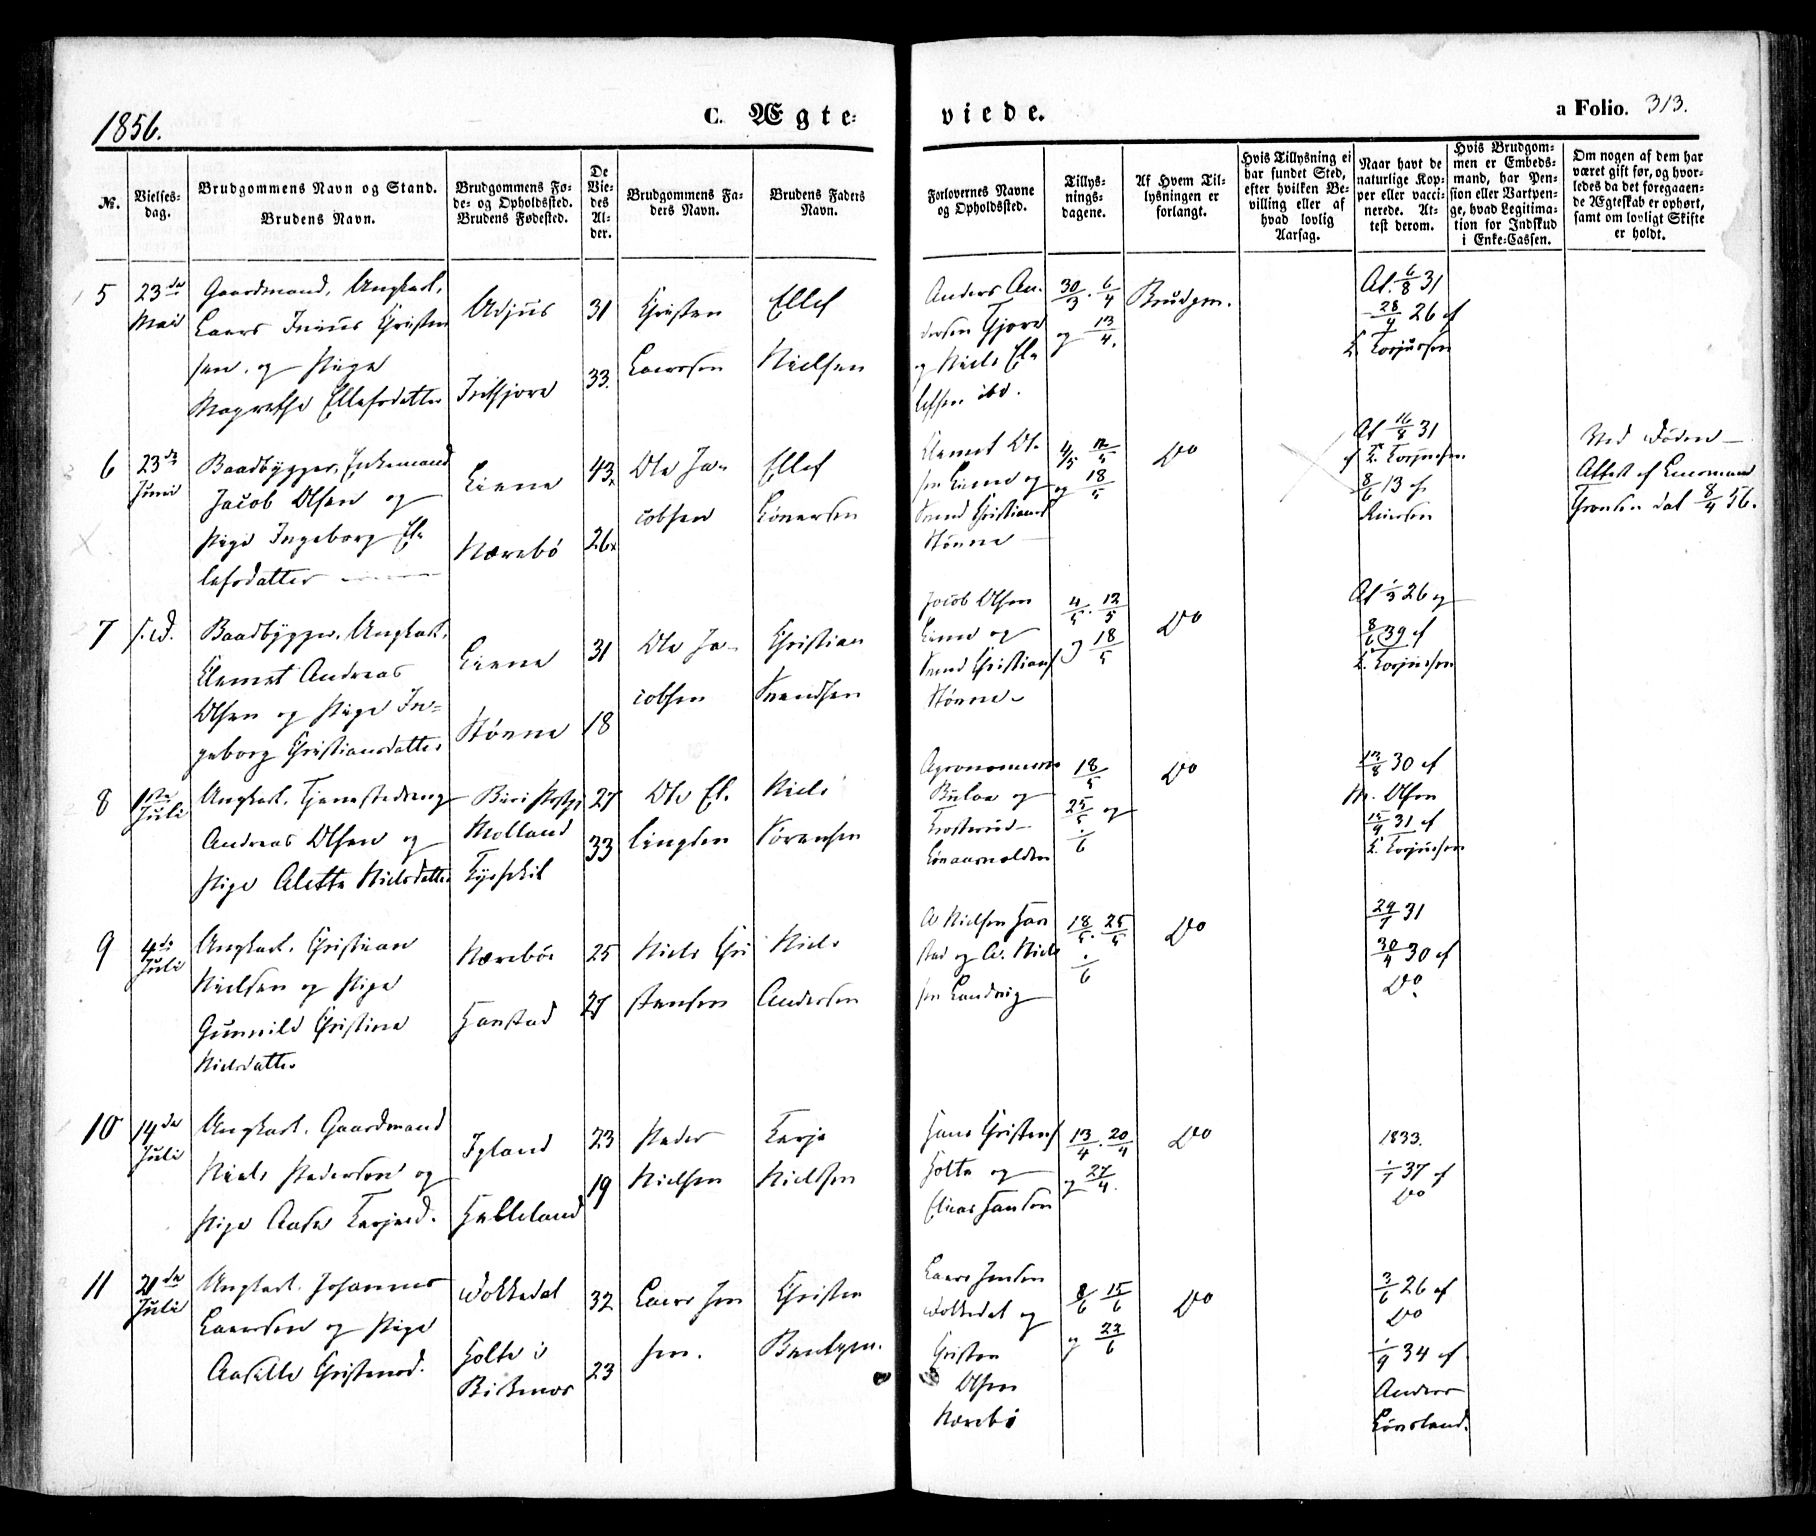 1856.
C. Ægte-
viede.
a Folio. 313.
№.
Vielses-
dag.
Brudgommens Navn og Stand.
Brudens Navn.
Brudgommens Fø-
de- og Opholdssted.
Brudens Fødested.
De
Vie-
des
Al-
der.
Brudgommens Fa-
ders Navn.
Brudens Faders
Navn.
Forlovernes Navne
og Opholdssted.
Tillys-
nings-
dagene.
Af Hvem Til-
lysningen er
forlangt.
Hvis Tillysning ei
har fundet Sted,
efter hvilken Be-
villing eller af
hvad lovlig
Aarsag.
Naar havt de
naturlige Kop-
per eller vacci-
nerede. At-
test derom.
Hvis Brudgom-
men er Embeds-
mand, har Pen-
sion eller Vartpen-
ge, hvad Legitima-
tion for Indskud
i Enke-Cassen.
Om nogen af dem har
været gift før, og hvor-
ledes da det foregaaen-
de Ægteskab er ophørt,
samt om lovligt Skifte
er holdt.
5
23de
Mai
Gaardmand, Ungkarl,
Laers Christen
sen, og Pige
Magrethe Ellefsdatter
31
33.
Christen
Laersen
Ellef
Nielsen
Anders An-
dersen
og Niels El-
lefsen ibd.
30/3. 6/4
og 13/4.
Brudgm.
At. 6/8 31
28/4 26 af
L. Torjussen
6
23de
Juni
Baadbygger, Enkemand
Jacob Olsen og
Pige Ingeborg El-
lefsdatter
Liene
Nærebö
43
26
Ole Ja-
cobsen
Ellef
Clemet Ol-
sen Liene og
Svend Christians
Stönne
4/5 12/5
og 18/5
Do
At 16/8 31
af L. Torjussen
8/6 13 af
Reiersen
Ved Döden
Attest af Lensmand
dat 8/4 56.
7
s.D.
Baadbygger, Ungkarl,
Clemet Andreas
Olsen og Pige In-
geborg Christiansdatter
Liene
Stönne
31
18
Ole Ja-
cobsen
Christian
Svendsen
Jacob Olsen
Liene og
Svend Christians
Stönne
4/5. 12/5
og 18/5
Do
At 1/3 26 og
8/6 39 af
L. Torjussen
8
1ste
Juli
Ungkarl. Tjenestedreng
Andreas Olsen og
Pige Alette Nielsdatter
Molland
27
33
Ole El-
lingsen
Niels
Sörensen
og
18/5
25/5 og
1/6
Do
12/8 30 af
M. Olsen
15/9 31 af
L. Torjussen
9
4de
Juli
Ungkarl. Christian
Nielsen og Pige
Gunnild Christine
Nielsdatter
Nærebö
Hanstad
25
27
Niels Chri
stensen
Niels
Andersen
A Nielsen Han
stad og A. Niel
sen Landvig
18/5. 25/5
1/6
Do
29/7 31
30/4 30 af
Do
10
14de
Juli
Ungkarl. Gaardmand
Niels Pedersen og
Pige Aase Terjesd.
Igland
Helleland
23
19
Peder
Nielsen
Terje
Nielsen
Hans Christens
Holte og
Elias Hansen
13/4. 20/4
og 27/4.
Do
1833.
1/7 37 af
Do
11
21de
Juli
Ungkarl. Johannes
Laersen og Pige
Christensd.
Dokkedal
Holte i
Birkenes
32
23
Laers Jen
sen.
Christen
Bentsen.
Laers Jensen
Dokkedal og
Christen
Olsen
Nærebö
8/6 15/6
og 22/6
Do
3/6 26 af
Do
1/9 34 af
Anders
Lönsland.